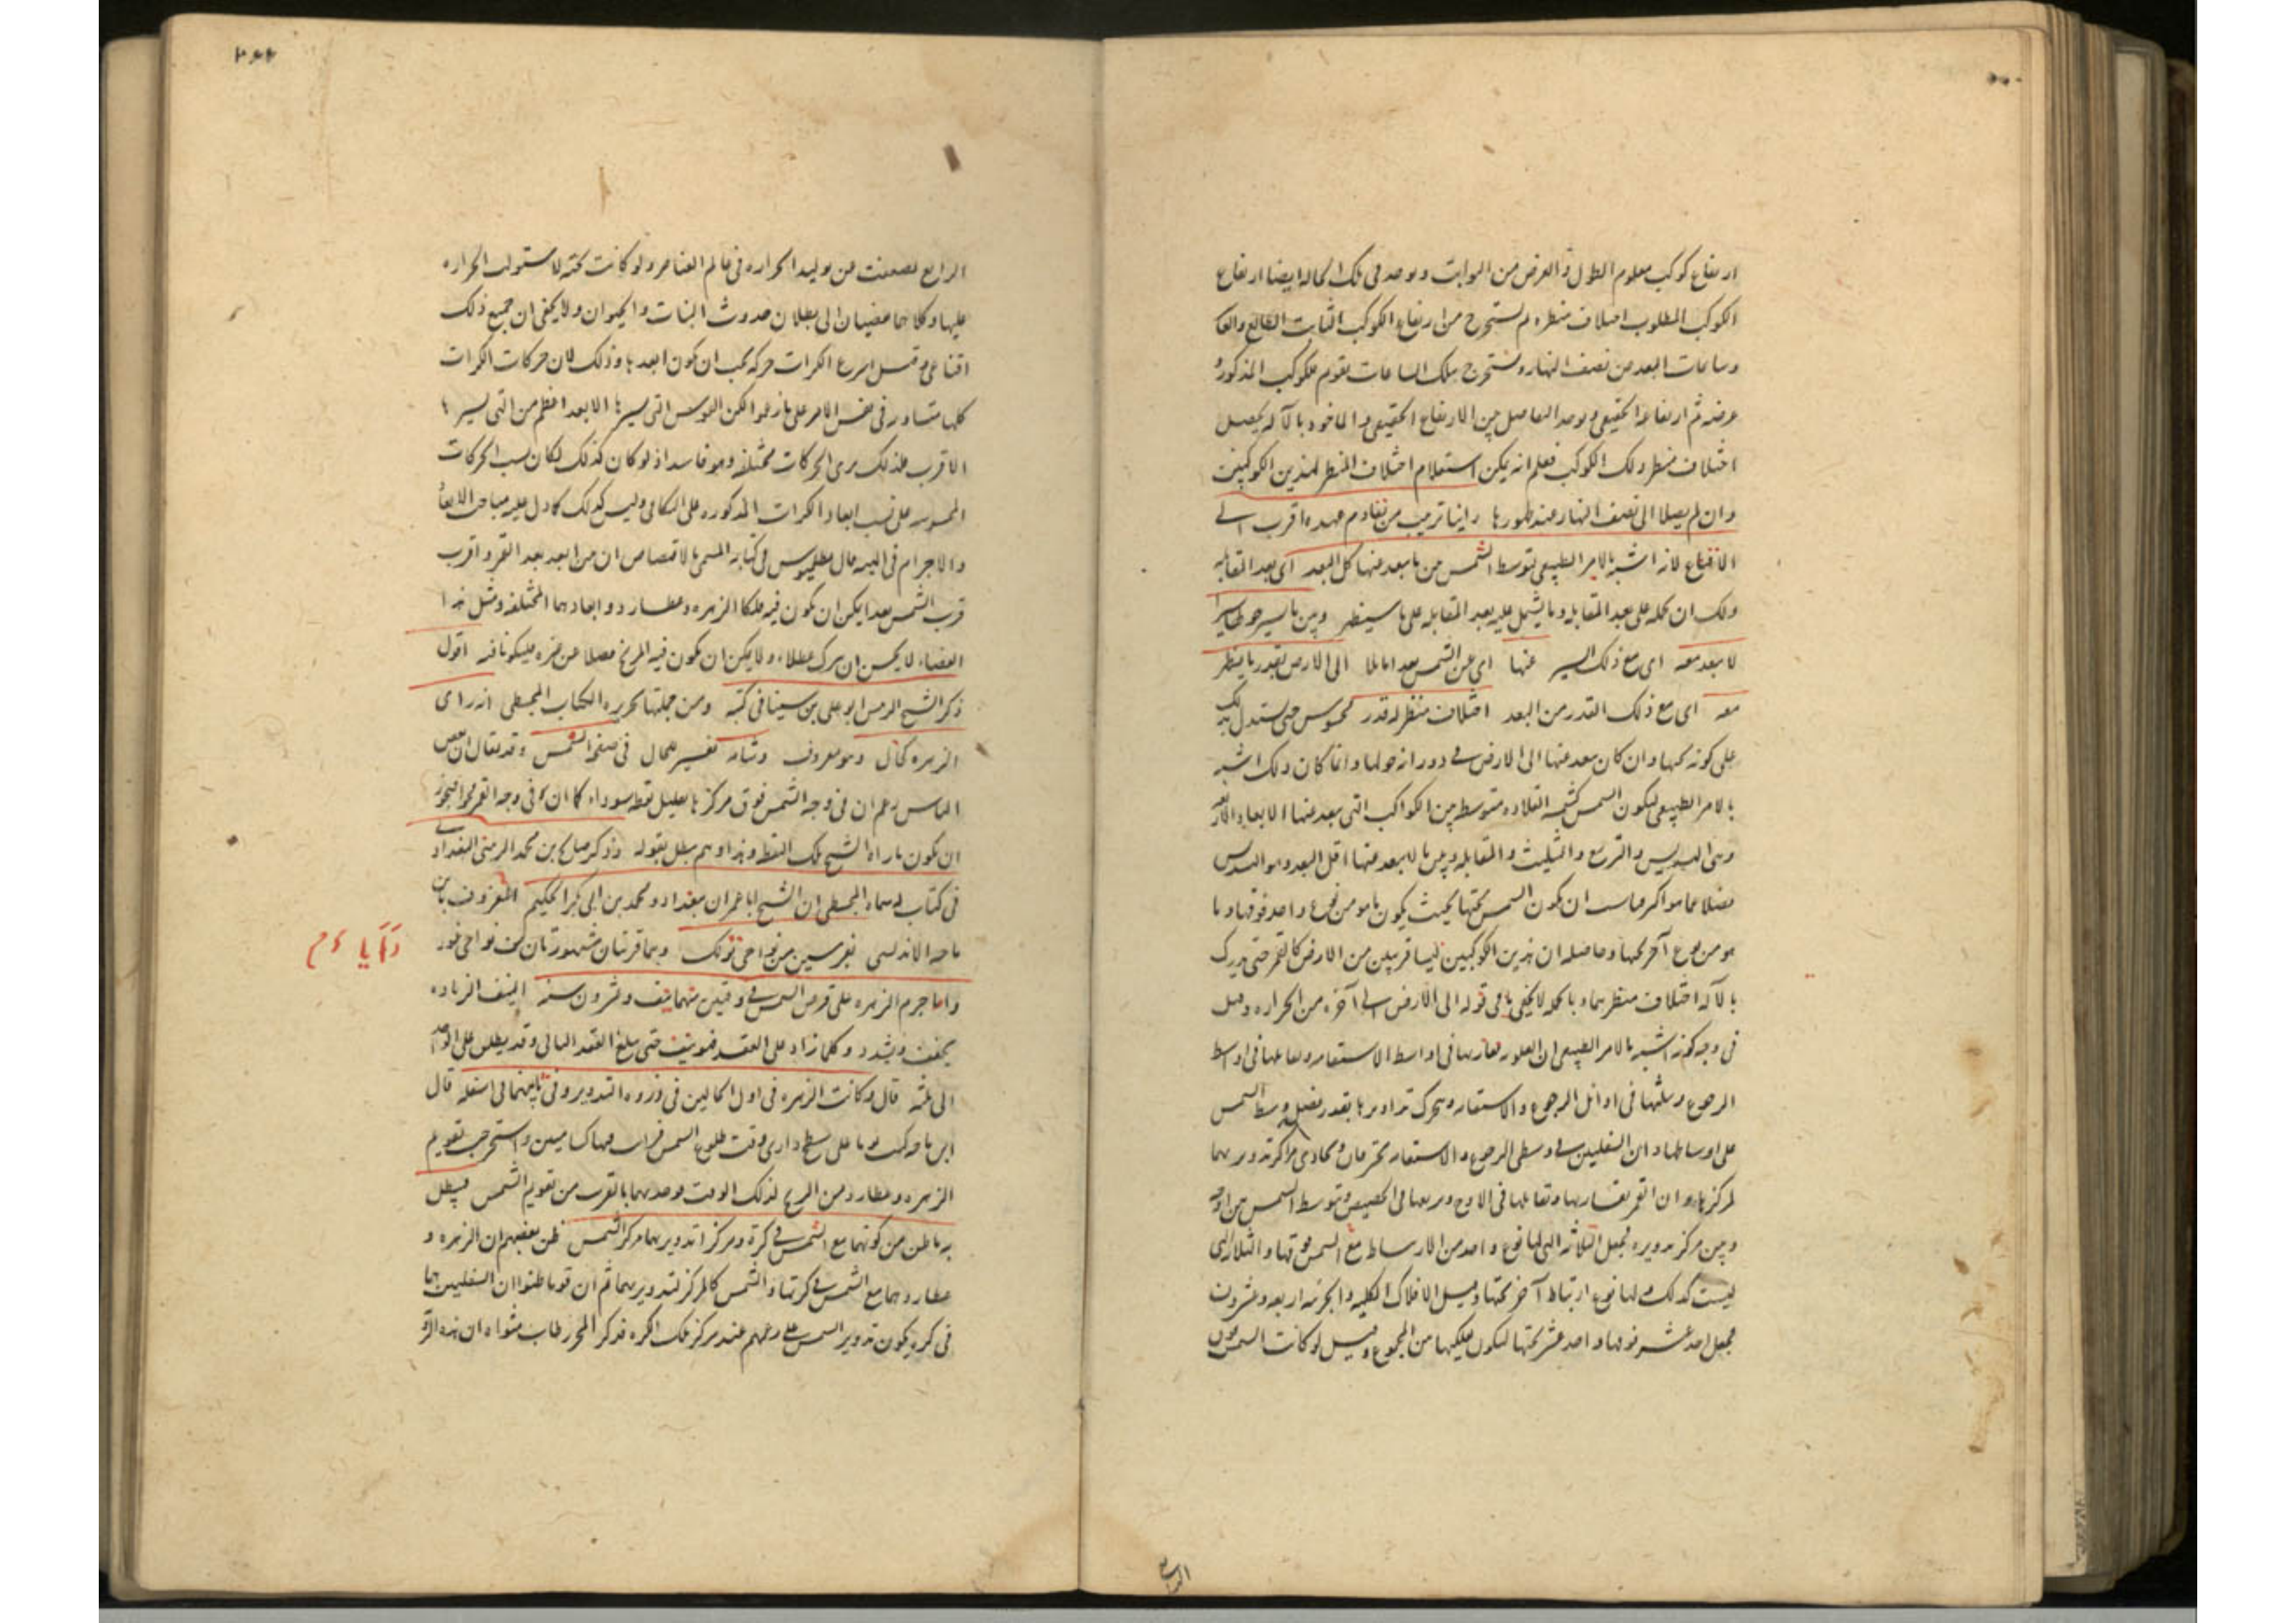 ارتفاع كوكب معلوم الطول و العرض من الثوابت و يوجد فى تلك الحالة ايضا ارتفاع
الكوكب المطلوب اختلاف منظره ثم يستخرج من ارتفاع الكوكب الثابت الطالع
وساعات البعد من نصف النهار ويستخرج بتلك الساعات تقويم الكوكب المذكور و
عرضه ثم ارتفاعه الحقيقى ويوجد التفاضل بين الارتفاع الحقيقى و الماخوذ بالآلة يحصل
اختلاف منظر ذلك الكوكب فعلم انه يمكن استعلام اختلاف المنظر لهذين الكوكبين
وان لم يصلا الى نصف النهار عند ظهورها رأينا ترتيب من تقادم عهده اقرب الى
الاقناع لانه اشبه بالامر الطبيعى لتوسط الشمس من ما يبعد عنها كل البعد اى بعد المقابلة
ولك ان تحمله على بعد المقابلة وما يشتمل عليه بعد المقابلة على ما سيظهر وبين ما يسير حولها سيرا
لا يبعد معه اى مع ذلك السير عنها اى عن الشمس بعدا مائلا الى الارض بقدر ما يظهر
معه اى مع ذلك القدر من البعد اختلاف منظر له قدر محسوس حتى يستدل بذلك
على كونه تحتها وان كان بعد عنها الى الارض فى دورانه حولها وانما كان ذلك اشبه
بالامر الطبيعى لتكون الشمس كشمسة القلادة متوسطة بين الكواكب التى يبعد عنها الابعاد الاربعة
وهى التسديس والتربيع والتثليث والمقابلة وبين ما لا يبعد عنها اقل البعد وهو التسديس
فضلا عما هو اكثر فناسب ان يكون الشمس تحتها بحيث يكون ما هو من نوع واحد فوقها وما
هو من نوع آخر تحتها وحاصله ان هذين الكوكبين ليسا قريبين من الارض كالقمر حتى يدرك
بالآلة اختلاف منظرهما وبالجملة لا يخفى ما فى قوله الى الارض الى آخره من الحرارة وقيل
فى وجه كونه اشبه بالامر الطبيعى ان العلوية تقاربها فى اواسط الاستقامة وتقابلها فى اواسط
الرجوع وتثلثها فى اوائل الرجوع والاستقامة وتحرك تداويرها بقدر فضل وسط الشمس
على اوساطها وان السفليين فى وسطى الرجوع والاستقامة تحترقان وتحاذى مراكز تدويرهما
لمركزها وان القمر يقاربها وتقابلها فى الاوج وتربعها فى الحضيض وتتوسط الشمس بين اوجه
وبين مركز تدويره فجعل الثلاثة التى لها نوع واحد من الارتباط مع الشمس فوقها والثلاثة التى
ليست كذلك بل لها نوع ارتباط آخر تحتها وقيل الافلاك الكلية والجزئية اربعة وعشرون
فجعل احد عشر فوقها واحد عشر تحتها ليكون فلكيها من المجموع وقيل لو كانت الشمس فوق
الرابع
الرابع لضعفت عن توليد الحرارة فى عالم العناصر ولو كانت تحته لاستولت الحرارة
عليها وكلاهما مفضيان الى بطلان حدوث النبات والحيوان ولا يخفى ان جميع ذلك
اقناعى وقيل اسرع الكرات حركة يجب ان يكون ابعد ها وذلك لان حركات الكرات
كلها متساوية فى نفس الامر على ما زعموا لكن القوس التى يسيرها الابعد اعظم من التى يسيرها
الاقرب فلذلك يرى الحركات مختلفة وهو فاسد اذ لو كان كذلك لكان نسب الحركات
المحسوسة على نسب ابعاد الكرات المذكورة على التكافى وليس كذلك كما دل عليه مباحث الابعاد
والاجرام فى الهيئة قال بطلميوس فى كتابه المسمى بالاقتصاص ان من ابعد بعد القمر و اقرب
قرب الشمس بعدا يمكن ان يكون فيه فلكا الزهرة وعطارد وابعادهما المختلفة ومثل هذا
الفضاء لا يحسن ان يترك عطلاء ولا يمكن ان يكون فيه المريخ فضلا عن غيره فليكونا فيه اقول
ذكر الشيخ الرئيس ابو على بن سينا فى كتبه ومن جملتها تحريره لكتاب المجسطى انه راى
الزهرة كخال وهو معروف وشامة تفسير للخال فى صفحة الشمس وقد يقال ان بعض
الناس زعم ان فى وجه الشمس فوق مركزها بقليل نقطة سوداء كما ان فى وجه القمر محوا فيجوز
ان يكون ما رآه الشيخ تلك النقطة وهذا وهم يبطل بقوله وذكر صالح بن محمد الزينى البغدادى
فى كتاب له سماه المجسطى ان الشيخ ابا عمران ببغداد و محمد بن ابى بكر الحكيم المعروف بابن
ماجه الاندلسى بفرسين من نواحى تولك وهما قريتان مشهورتان من نواحى غور
راايا م
و اما جرم الزهرة على قرص الشمس فى وقتين بينهما نيف وعشرون سنة النيف الزيادة
يخفف ويشدد وكلما زاد على العقد فهو نيف حتى يبلغ العقد الثانى وقد يطلق على الواحد
الى ثلثة قال وكانت الزهرة فى اول الحالين فى ذروة التدوير وفى ثانيهما فى اسفله قال
ابن ماجه كنت يوما على سطح دارى وقت طلوع الشمس فرايت فيها كشامتين واستخرجت تقويم
الزهرة وعطارد من الزيج لذلك الوقت فوجدتهما بالقرب من تقويم الشمس فبطل
به ما ظن من كونهما مع الشمس فى كرة ومركزا تدويرهما مركز الشمس ظن بعضهم ان الزهرة و
عطارد هما مع الشمس فى كرتها والشمس كالمركز لتدويريهما ثم ان قوما ظنوا ان السفليين هما
فى كرة يكون تدوير الشمس على زعمهم عند مركز تلك الكرة فذكر المحرر طاب مثواه ان هذه